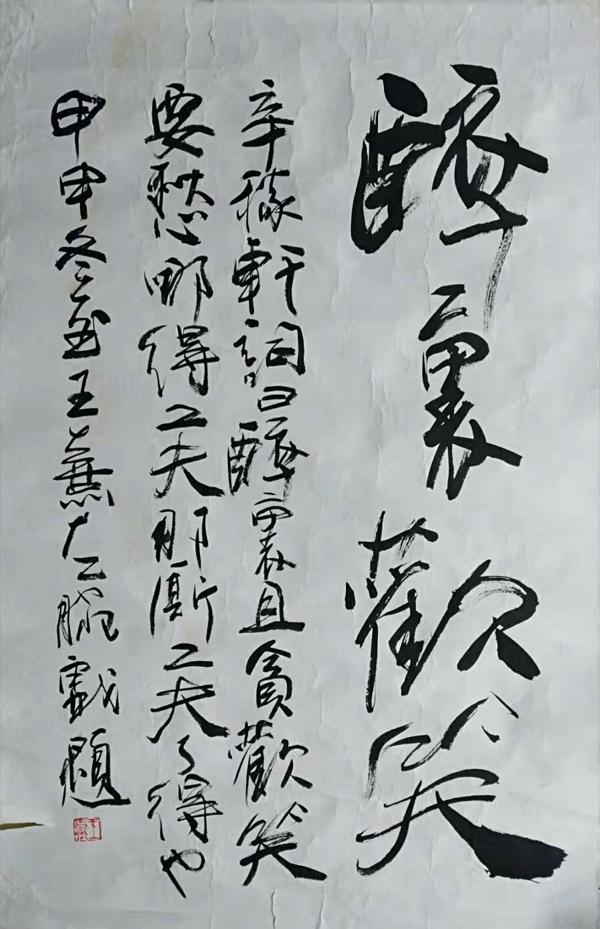 醉裏歡笑
辛稼軒詞曰醉裏且貪歡笑
要愁哪得工夫那廝工夫了得也
甲申冬至王大左腕戲題